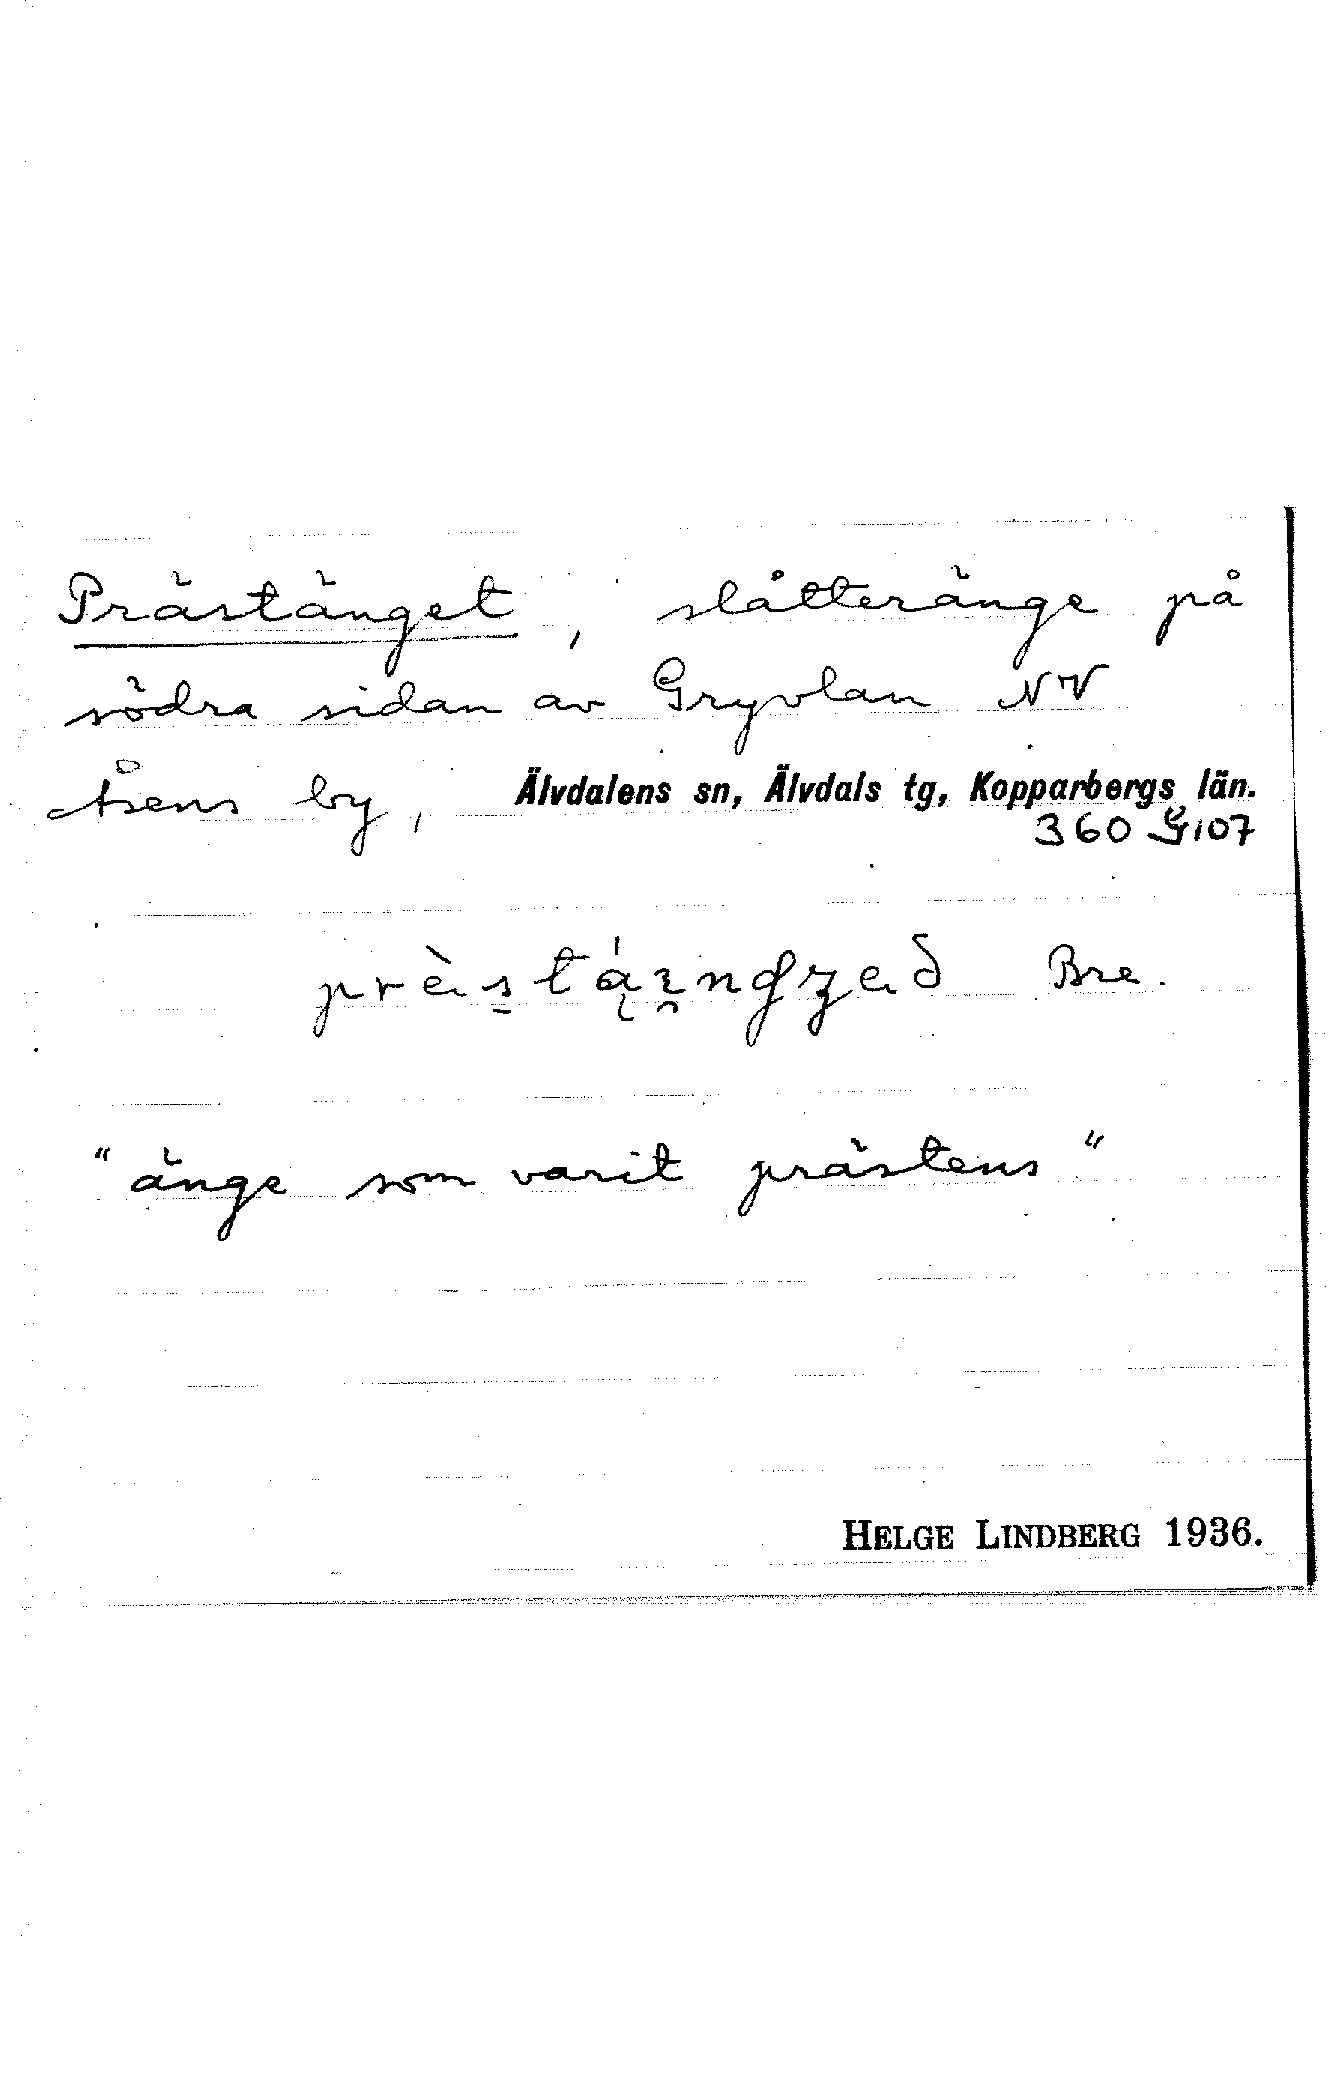 Prästänget, slåtteränge på
södra sidan av Gryvlan NV
Åsens by, Älvdalens sn, Älvdals tg, Kopparbergs län.
360 G107
Bre.
"änge som varit prästens"
HELGE LINDBERG 1936.